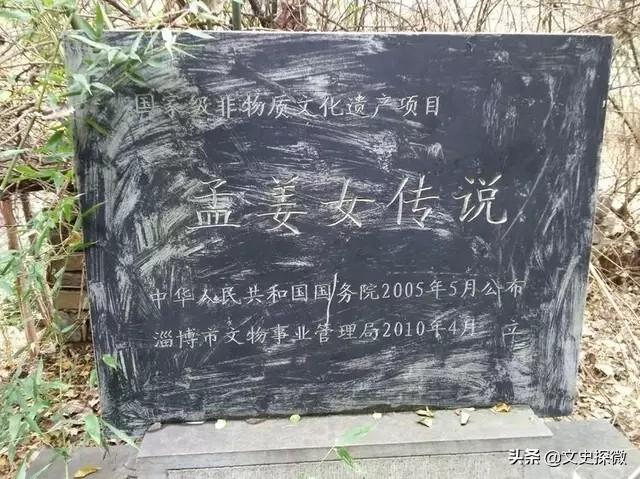 国家级非物质文化遗产项目
孟姜女传说
中华人民共和国国务院2005年5月公布
淄博市文物事业管理局2010年4月 立
头条 @文史探微